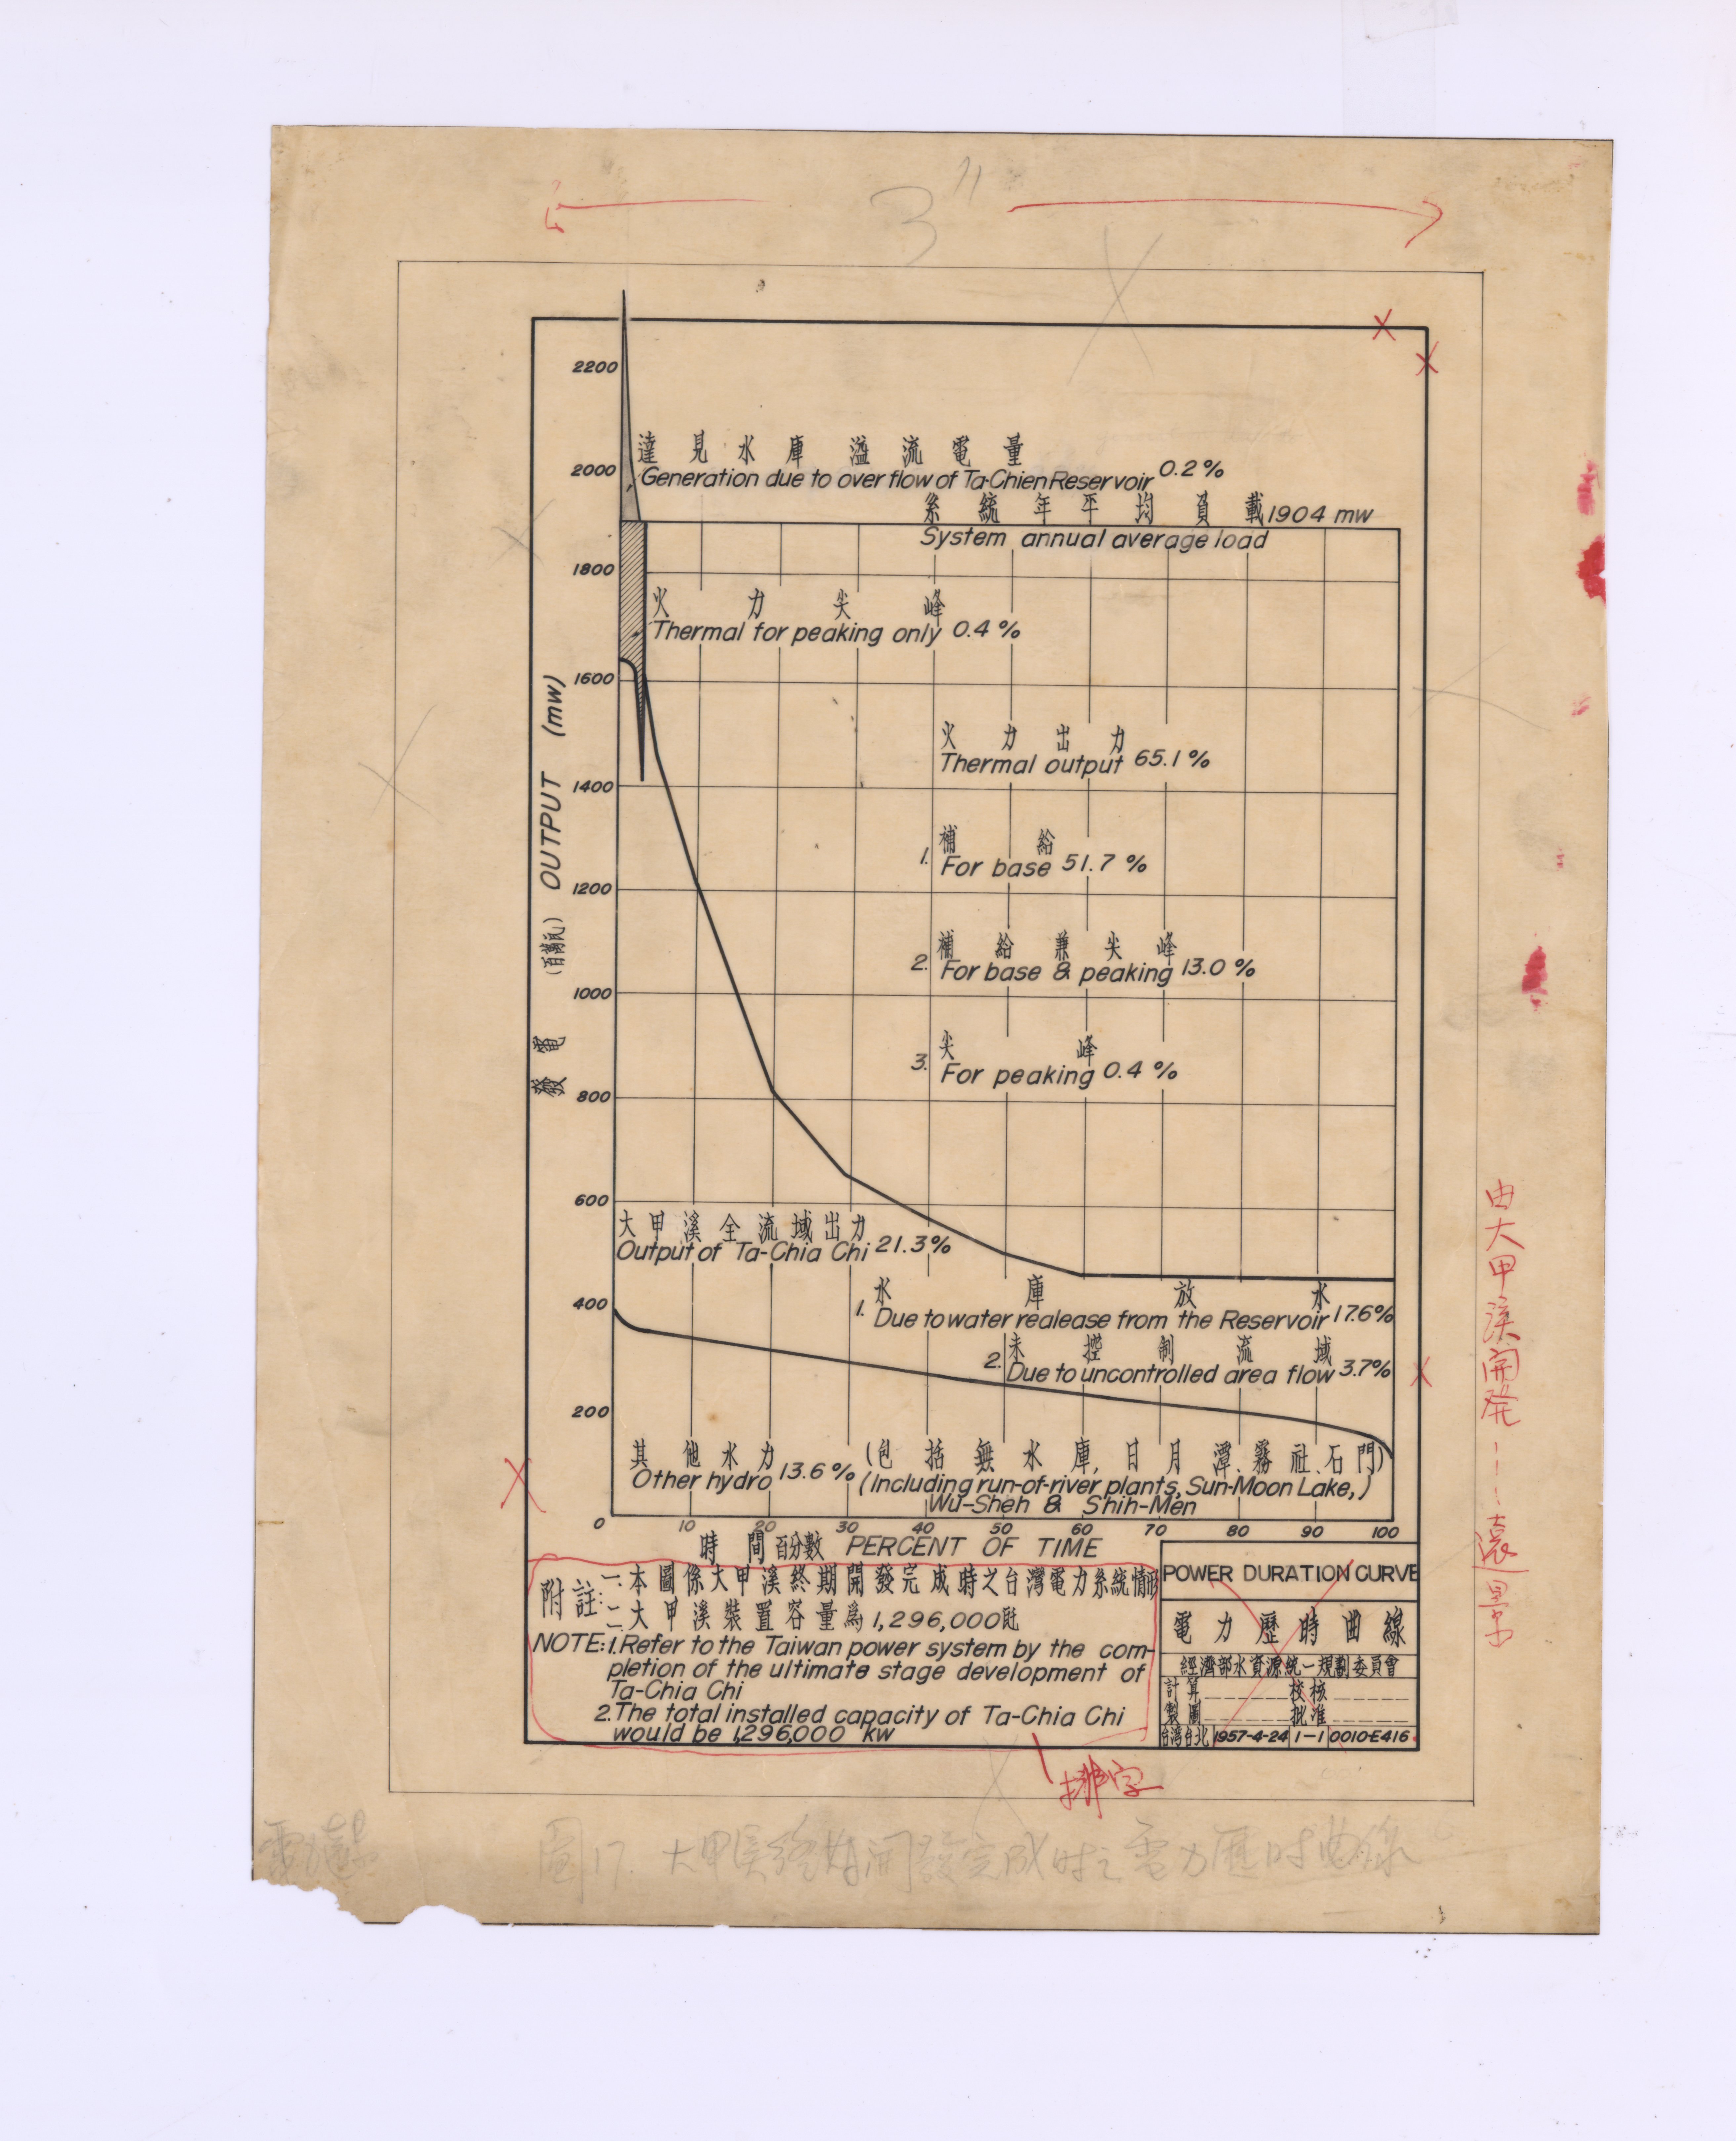 3"
2200
達見水庫溢流電量
Generation due to over flow of Ta-Chien Reservoir 0.2%
2000
系統年平均負載 1904 mw
System annual average load
1800
火力尖峰
Thermal for peaking only 0.4%
1600
火力出力
Thermal output 65.1%
1400
補給
1. For base 51.7 %
1200
補給兼尖峰
2. For base & peaking 13.0 %
1000
尖峰
3. For peaking 0.4 %
800
600
大甲溪全流域出力
Output of Ta-Chia Chi 21.3%
400
水庫放水
1. Due to water realease from the Reservoir 17.6%
未控制流域
2. Due to uncontrolled area flow 3.7%
200
其他水力 (包括無水庫,日月潭、霧社、石門)
Other hydro 13.6% (Including run-of-river plants, Sun-Moon Lake,)
Wu-Sheh & Shih-Men
0 10 20 30 40 50 60 70 80 90 100
時間百分數 PERCENT OF TIME
發電 (百萬瓦) OUTPUT (mw)
附註:一.本圖係大甲溪終期開發完成時之台灣電力系統情形
二.大甲溪裝置容量為1,296,000瓩
NOTE:1.Refer to the Taiwan power system by the com-
pletion of the ultimate stage development of
Ta-Chia Chi
2.The total installed capacity of Ta-Chia Chi
would be 1,296,000 kw
POWER DURATION CURVE
電力歷時曲線
經濟部水資源統一規劃委員會
計算 校核
製圖 批准
台灣台北 1957-4-24 1-1 0010-E416
排字
由大甲溪開発---遠景
圖17. 大甲溪終期開發完成時之電力歷时曲線